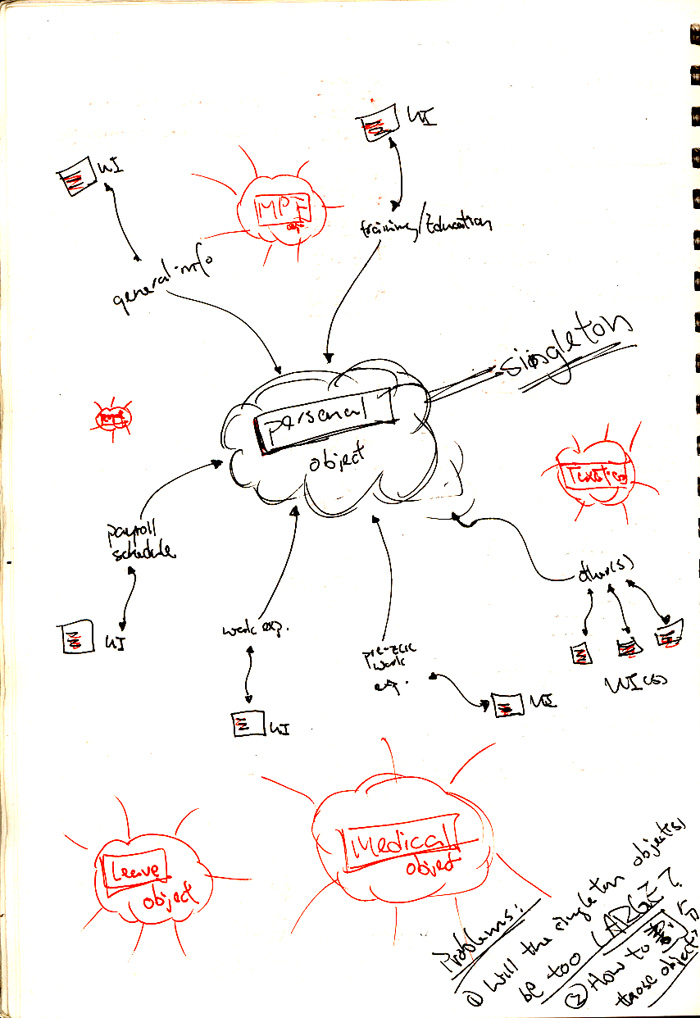 UI
UI
MPF
obj.
training/Education
general-info
singleton
personal
object
payroll
schedule
UI
other(s)
UI(s)
work exp.
UI
work
exp.
UI
Leave
object
Medical
object
Problems:
① Will the singleton object(s)
be too LARGE?
② How to
those objects?